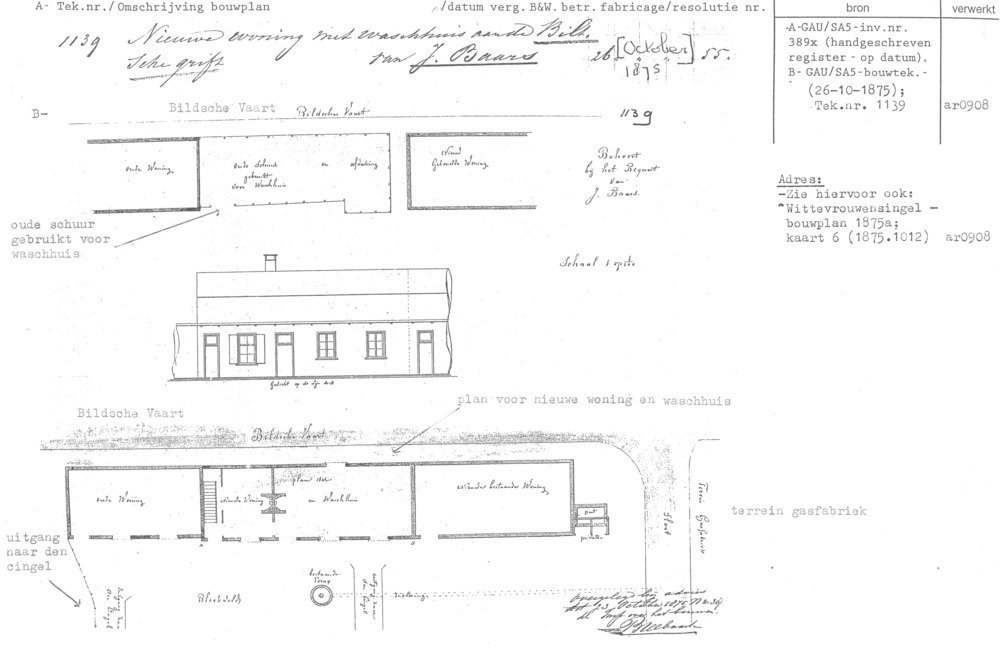 A- Tek.nr./Omschrijving bouwplan
/datum verg. B&W. betr. fabricage/resolutie nr.
bron
verwerkt
1139 Nieuwe woning met waschhuis aan de Bilt.
Sche grift van J. Baars 26 [October] 55.
1875
-A-GAU/SA5-inv.nr.
389x (handgeschreven
register - op datum).
B- GAU/SA5-bouwtek.-
(26-10-1875);
Tek.nr. 1139
ar0908
B-
Bildsche Vaart
Bildsche Vaart
1139
oude Woning
oude Schuur en afdaking
gebruikt
voor Waschhuis
Nieuw
Gebouwde Woning
Behoort
bij het Request
van
J. Baars
Adres:
-Zie hiervoor ook:
"Wittevrouwensingel -
bouwplan 1875a;
kaart 6 (1875.1012)
ar0908
oude schuur
gebruikt voor
waschhuis
Schaal 1 op
Gezicht op de lijn
plan voor nieuwe woning en waschhuis
Bildsche Vaart
Bildsche Vaart
oude Woning
nieuwe Woning
plan voor
en Waschhuis
Nieuwe bestaande Woning
put
privaten
Sloot
Terrein Gasfabriek
terrein gasfabriek
uitgang
naar den
cingel
uitgang naar
den Cingel
Bleekveld
bestaande
uitgang naar
den Cingel
riolering
overgelegd bij advies
dd 23 October 1875 No 39